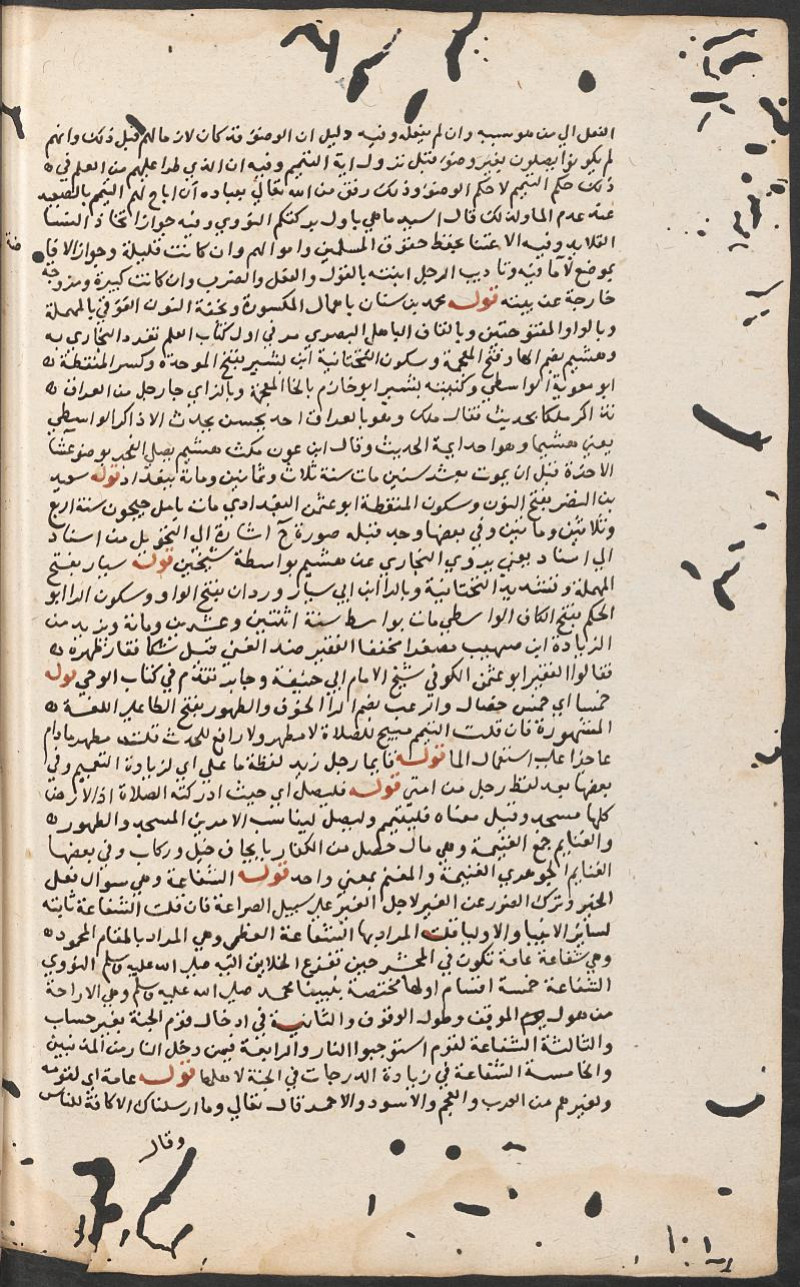 الفعل الي من هو سببه وان لم يفعله وفيه دليل ان الوضوء قد كان لازما لهم قبل ذلك وانهم
لم يكونوا يصلون بغير وضوء قبل نزول اية التيمم وفيه ان الذي طرا عليهم من العلم في
ذلك حكم التيمم لا حكم الوضوء وذلك رفق من الله تعالي بعباده ان اباح لهم التيمم بالصعيد
عند عدم الما ولذلك قال اسيد ما هي باول بركتكم النووي وفيه جواز اتخاذ النسا
القلايد وفيه الاعتنا بحفظ حقوق المسلمين واموالهم وان كانت قليلة وجواز الاقا
بموضع لا ما فيه وتاديب الرجل ابنته بالقول والفعل والضرب وان كانت كبيرة ومزوجة
خارجة عن بيته قوله محمد بن سنان باهمال المكسورة وخفة النون العوقي بالمهملة
وبالواو المفتوحتين وبالقاف الباهلي البصري مر في اول كتاب العلم تفرد البخاري به
وهشيم بضم الها وفتح المعجمة وسكون التحتانية ابن بشير بفتح الموحدة وكسر المنقطة
ابو معوية الواسطي وكنيته بشير ابو خازم بالخا المعجمة وبالزاي جا رجل من العراق
فذاكر ملكا بحديث فقال ملك وهو بالعراق احد يحسن يحدث الا ذاك الواسطي
يعني هشيما وهو احد ايمة الحديث وقال ابن عون مكث هشيم يصلي الفجر بوضوء عشا
الاخرة قبل ان يموت بعشر سنين مات سنة ثلاث وثمانين وماية ببغداد قوله سعيد
بن النضر بفتح النون وسكون المنقطة ابو عثمن البغدادي مات بامل جيحون سنة اربع
وثلاثين ومايتين وفي بعضها وجد قبله صورة ح اشارة الي التحويل من اسناد
الي اسناد يعني يروي البخاري عن هشيم بواسطة شيخين قوله سيار بفتح
المهملة وتشديد التحتانية وبالرا ابن ابي سيار وردان بفتح الواو وسكون الرا ابو
الحكم بفتح الكاف الواسطي مات بواسط سنة اثنتين وعشرين وماية ويزيد من
الزيادة ابن صهيب مصغرا مخففا الفقير ضد الغني قيل شكا فقار ظهره
فقالوا الفقير ابو عثمن الكوفي شيخ الامام ابي حنيفة وجابر تقدم في كتاب الوحي قوله
خمسا اي خمس خصال والرعب بضم الرا الخوف والطهور بفتح الطا علي اللغة
المشهورة فان قلت التيمم مبيح للصلاة لا مطهر ولا رافع للحدث قلت مطهر مادام
عاجزا عن استعمال الما قوله فايما رجل زيد لفظة ما علي اي لزيادة التعميم وفي
بعضها بعد لفظ رجل من امتي قوله فليصل اي حيث ادركته الصلاة اذ الارض
كلها مسجد وقيل معناه فليتيمم وليصل ليناسب الامرين المسجد والطهور
والغنايم جمع الغنيمة وهي مال حصل من الكفار بايجاف خيل وركاب وفي بعضها
الغنايم الجوهري الغنيمة والمغنم بمعني واحد قوله الشفاعة وهي سوال فعل
الخير وترك الضرر عن الغير لاجل الغير علي سبيل الضراعة فان قلت الشفاعة ثابتة
لساير الانبيا والاوليا قلت المراد بها الشفاعة العظمي وهي المراد بالمقام المحمود
وهي شفاعة عامة تكون في المحشر حين تفزع الخلايق اليه صلي الله عليه وسلم النووي
الشفاعة خمسة اقسام اولها مختصة بنبينا محمد صلي الله عليه وسلم وهي الاراحة
من هول الموقف وطول الوقوف والثانية في ادخال قوم الجنة بغير حساب
والثالثة الشفاعة لقوم استوجبوا النار والرابعة فيمن دخل النار من المذنبين
والخامسة الشفاعة في زيادة الدرجات في الجنة لاهلها قوله عامة اي لقومه
ولغيرهم من العرب والعجم والاسود والاحمر قال تعالي وما ارسلناك الا كافة للناس
وقال